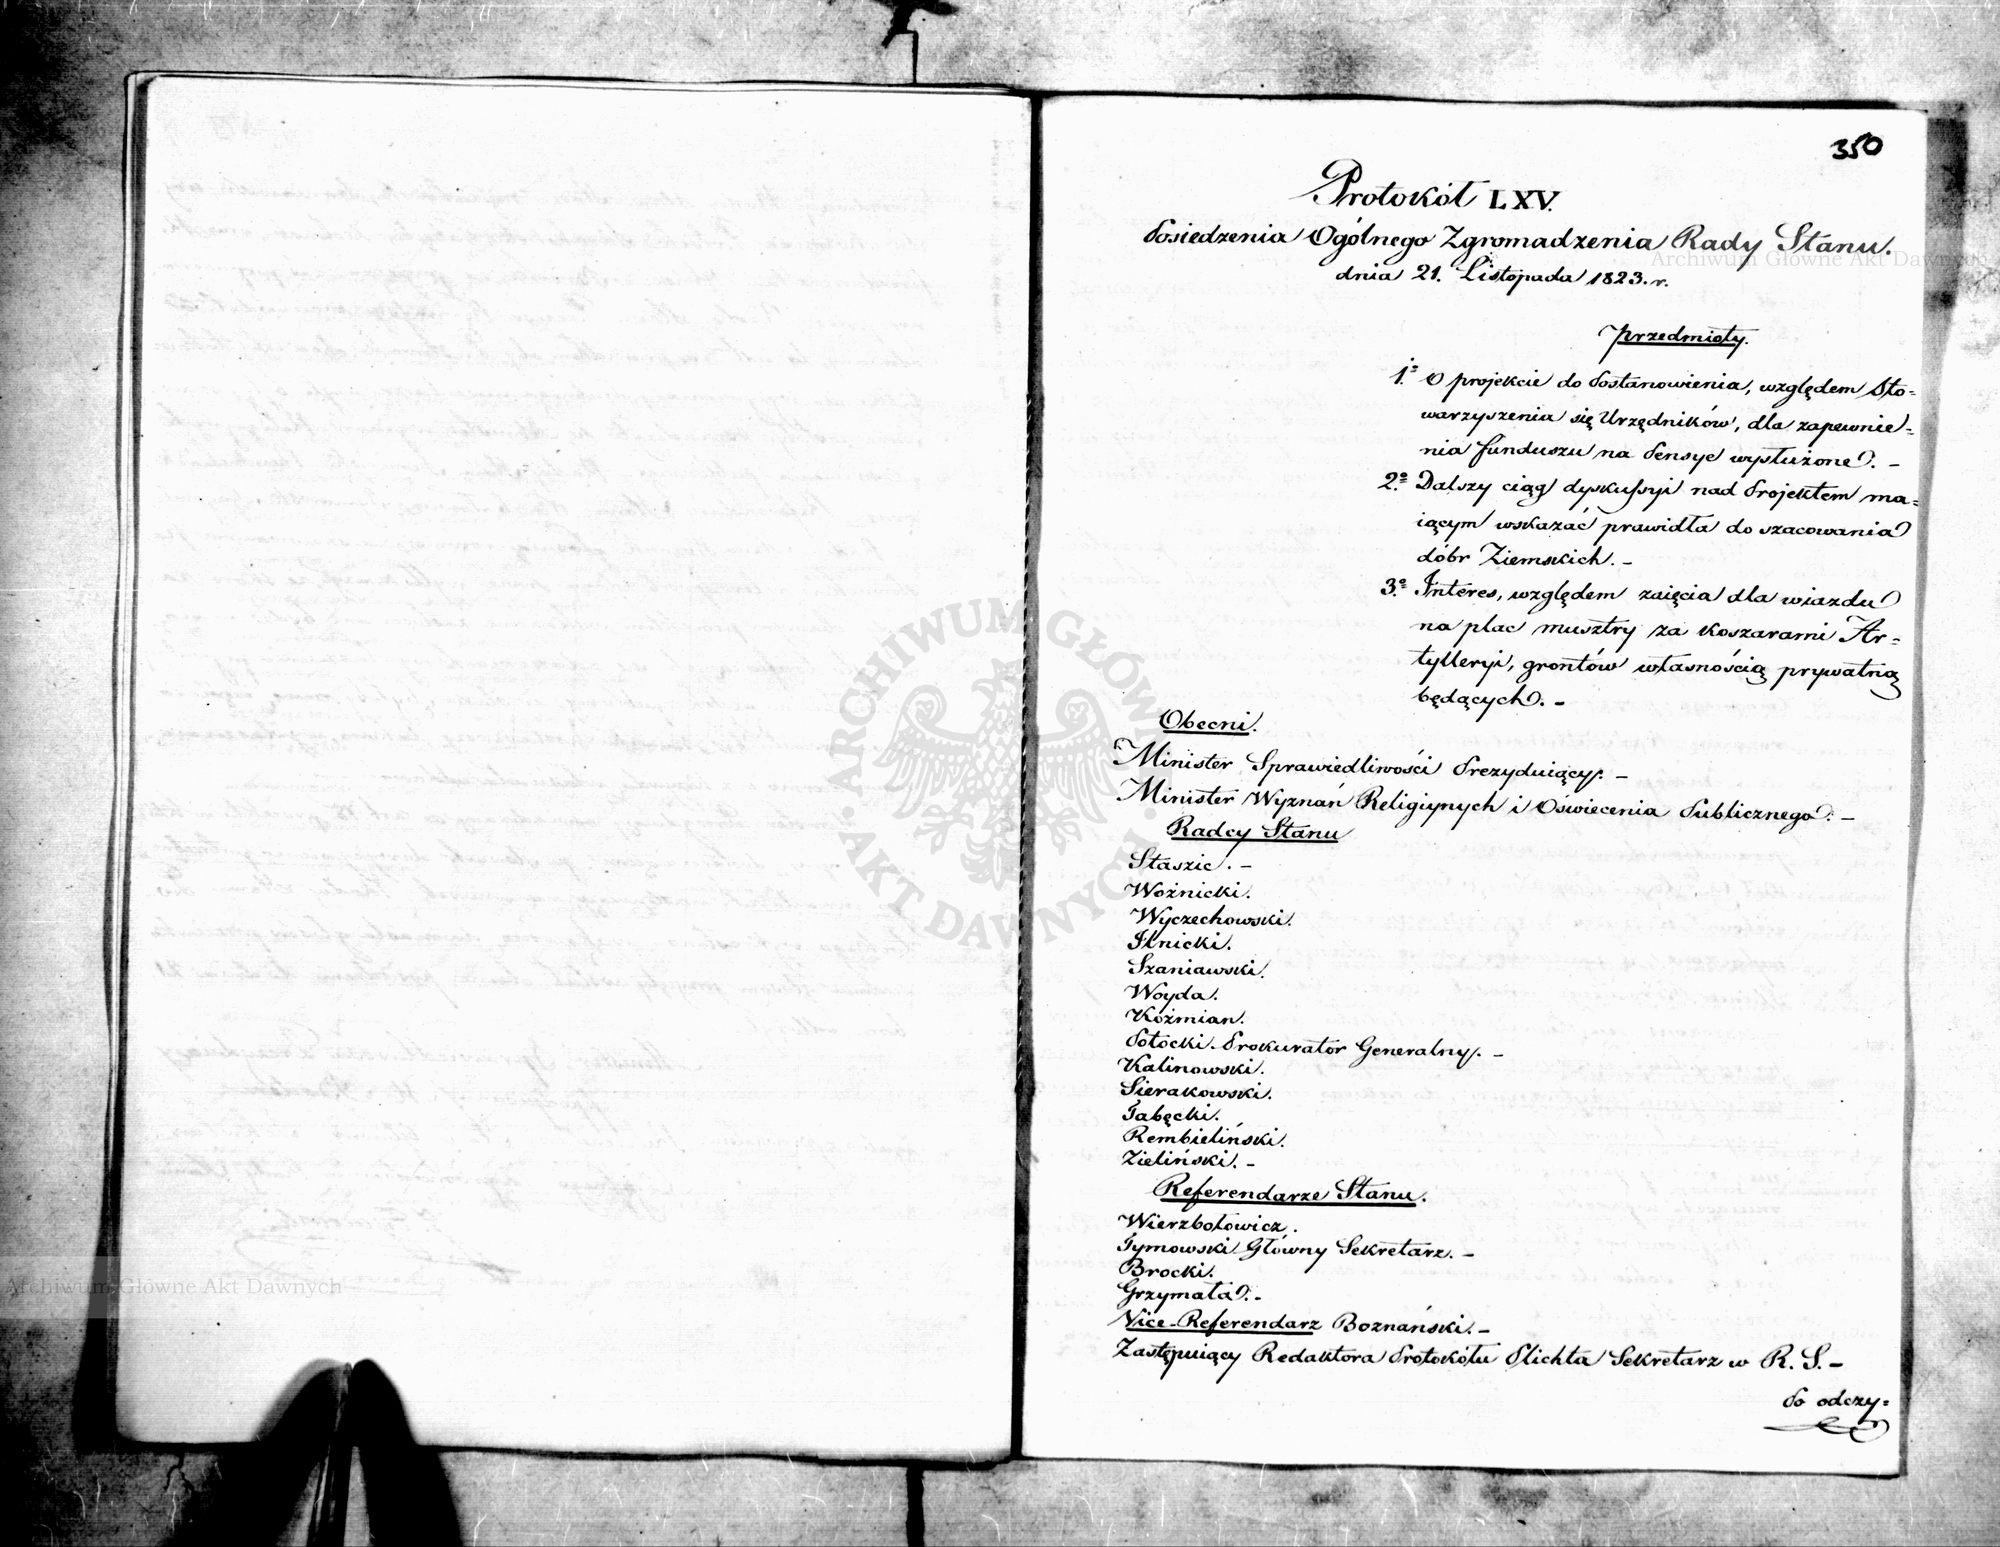 350
Protokół LXV.
Posiedzenia Ogólnego Zgromadzenia Rady Stanu.
dnia 21. Listopada 1823. r.
Przedmioty.
1.º O projekcie do Postanowienia, względem Sto=
warzyszenia się Urzędników, dla zapewnie=
nia funduszu na Pensye wysłużone. –
2.º Dalszy ciąg dyskussyi nad Projektem ma=
iącym wskazać prawidła do szacowania
dóbr Ziemskich. –
3.º Interes, względem zaięcia dla wiazdu
na plac musztry za koszarami Ar=
tylleryi, grontów własnością prywatną
będących. –
Obecni.
Minister Sprawiedliwości Prezyduiący. –
Minister Wyznań Religiynych i Oświecenia Publicznego. –
Radcy Stanu
Staszic. –
Woźnicki.
Wyczechowski.
Ilnicki.
Szaniawski.
Woyda.
Koźmian.
Potocki Prokurator Generalny. –
Kalinowski.
Sierakowski.
Tabęcki.
Rembieliński.
Zieliński. –
Referendarze Stanu.
Wierzbołowicz.
Tymowski Główny Sekretarz. –
Brocki.
Grzymała. –
Vice-Referendarz Boznański. –
Zastępuiący Redaktora Protokółu Plichta Sekretarz w R. S. –
Po odczy=
ARCHIWUM GŁÓWNE AKT DAWNYCH
Archiwum Główne Akt Dawnych
Archiwum Główne Akt Dawnych